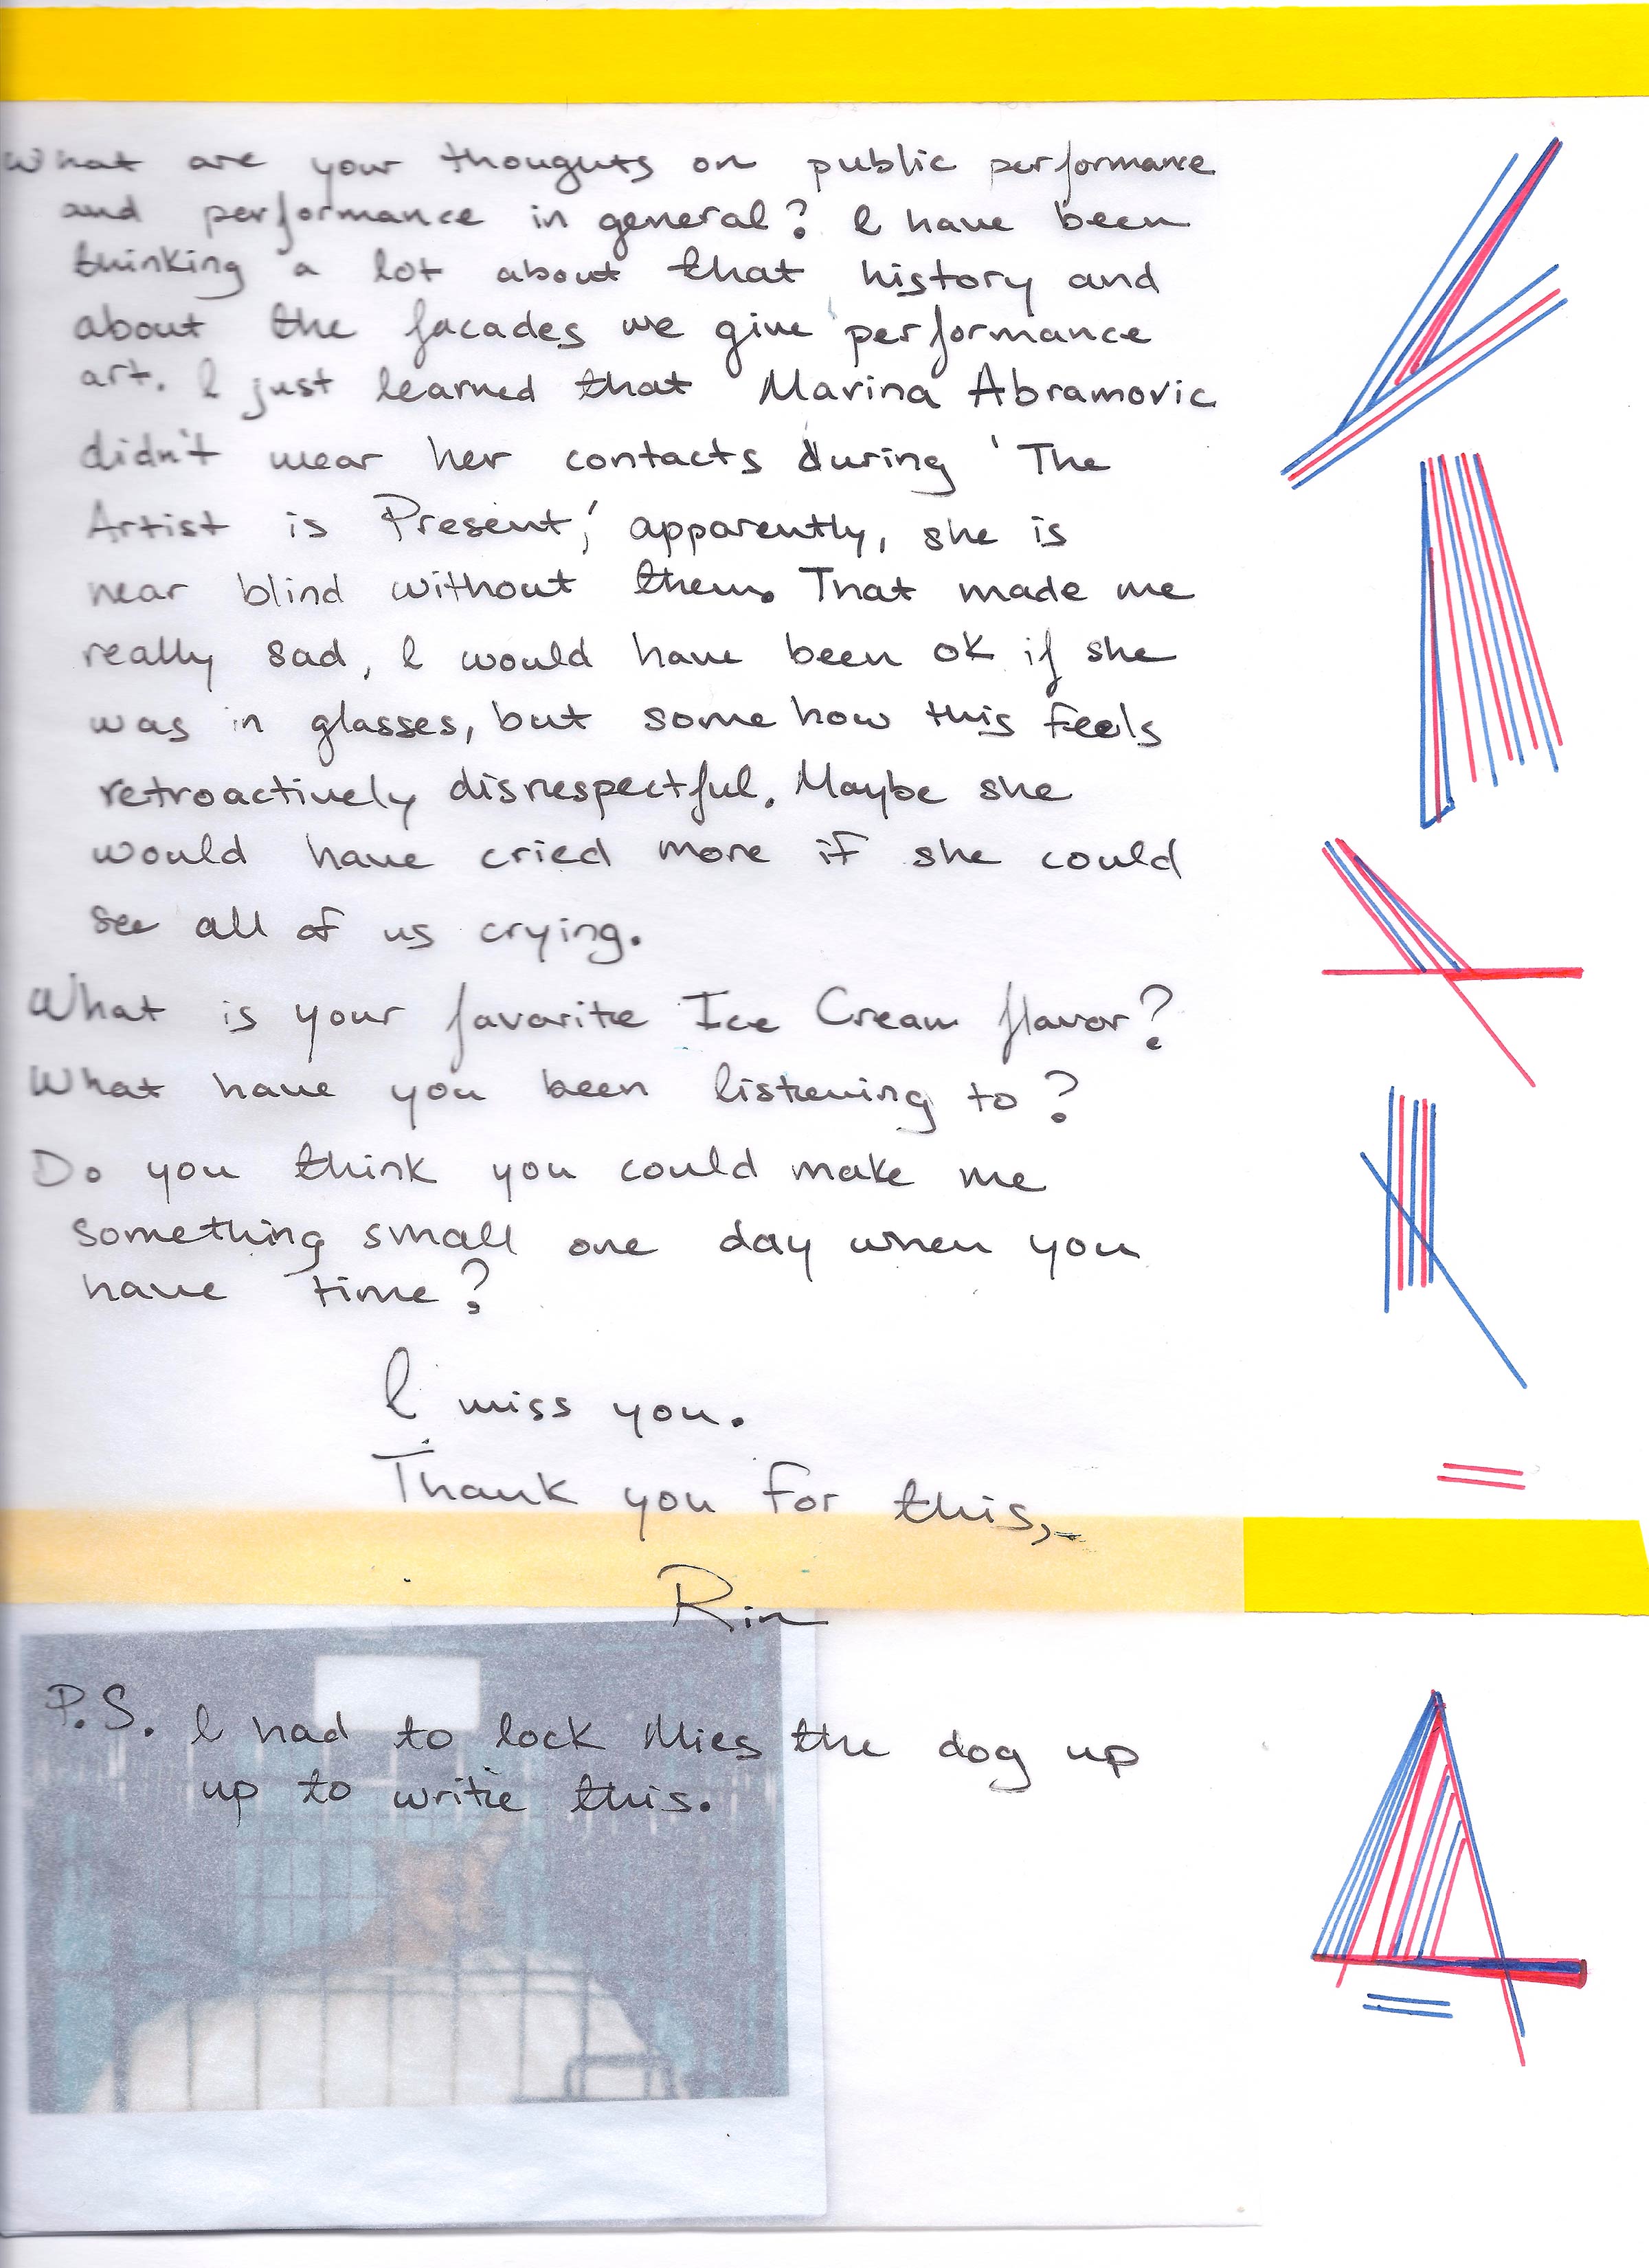 What are your thoughts on public performance
and performance in general? I have been
thinking a lot about that history and
about the facades we give performance
art. I just learned that Marina Abramovic
didn't wear her contacts during 'The
Artist is Present,' apparently, she is
near blind without them. That made me
really sad, I would have been ok if she
was in glasses, but some how this feels
retroactively disrespectful. Maybe she
would have cried more if she could
see all of us crying.
What is your favorite Ice Cream flavor?
What have you been listening to?
Do you think you could make me
something small one day when you
have time?
I miss you.
Thank you for this,
Rin
P.S. I had to lock Mies the dog up
up to write this.